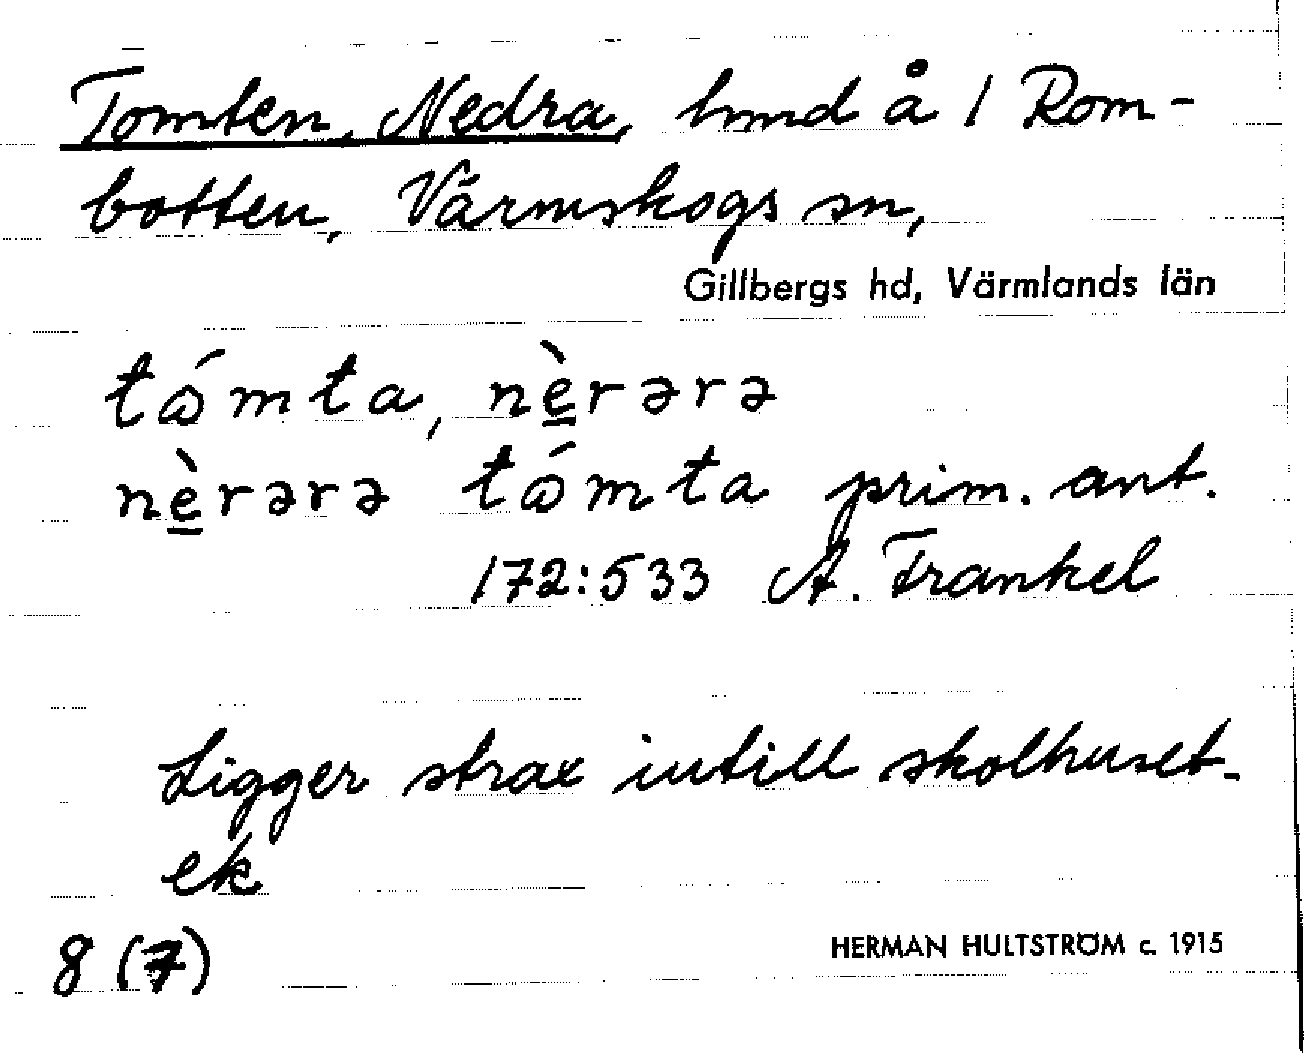 Tomten, Nedra, hmd å 1 Rom-
botten, Värmskogs sn,
Gillbergs hd, Värmlands län
tǿmta, nè̱rərə
nè̱rərə tǿmta prim. ant.
172:533 A. Frankel
Ligger strax intill skolhuset.
ek
8 (7)
HERMAN HULTSTRÖM c. 1915